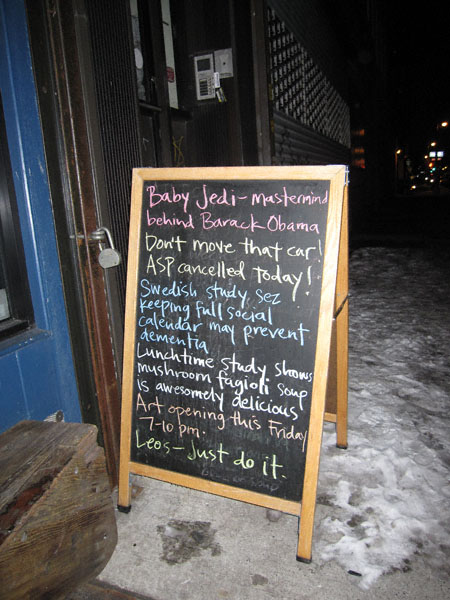 Baby Jedi - mastermind
behind Barack Obama
Don't move that car!
ASP cancelled today!
Swedish study sez
keeping full social
calendar may prevent
dementia
Lunchtime study shows
mushroom fagioli soup
is awesomely delicious
Art opening this Friday
7-10 pm.
Leos - just do it.